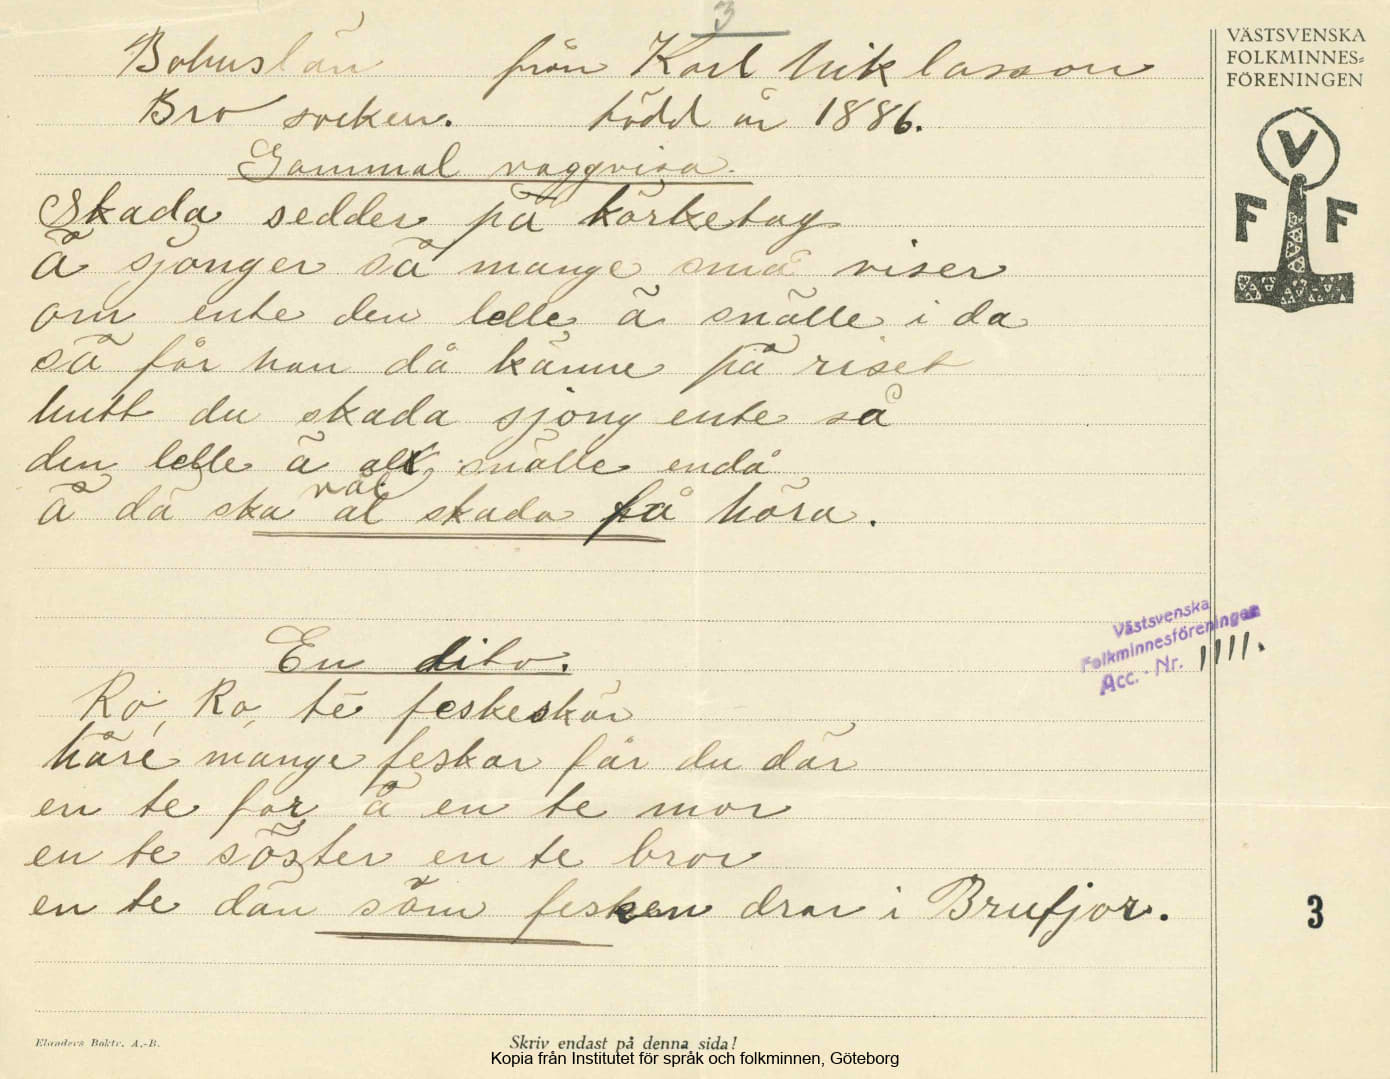 3
Bohuslän från Karl Niklasson
Bro socken. född år 1886.
Gammal vaggvisa.
Skada sedder på körketag
å sjonger så mange små viser
om ente den lelle ä snälle i da
så får han då känne på riset
hutt du skada sjong ente så
den lelle ä snälle endå
väl
å då ska al skada få höra.
En dito.
Ro, Ro, te feskeskär
håre mange feskar får du där
en te far å en te mor
en te söster en te bror
en te dän såm fesken drar i Brufjor.
VÄSTSVENSKA
FOLKMINNES=
FÖRENINGEN
V
F F
Västsvenska
Folkminnesföreningen
Acc. - Nr. 1111.
3
Elanders Boktr. A.-B.
Skriv endast på denna sida!
Kopia från Institutet för språk och folkminnen, Göteborg